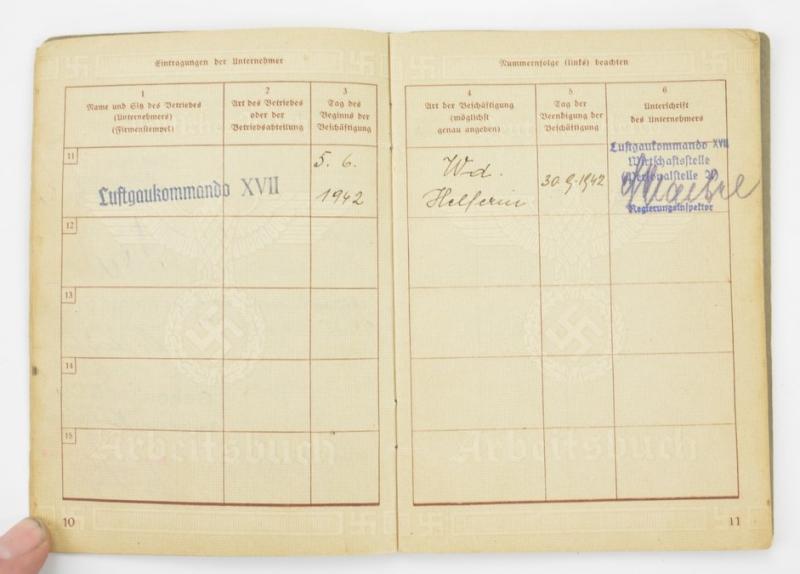 Eintragungen der Unternehmer
1
Name und Sitz des Betriebes
(Unternehmers)
(Firmenstempel)
2
Art des Betriebes
oder der
Betriebsabteilung
3
Tag des
Beginns der
Beschäftigung
11
Luftgaukommando XVII
5. 6.
1942
12
13
14
15
Arbeitsbuch
10
Nummernfolge (links) beachten
4
Art der Beschäftigung
(möglichst
genau angeben)
5
Tag der
Beendigung der
Beschäftigung
6
Unterschrift
des Unternehmers
Wd.
Helferin
30.9.1942
Luftgaukommando XVII
Wirtschaftsstelle
(Personalstelle
Regierungsinspektor
Arbeitsbuch
11